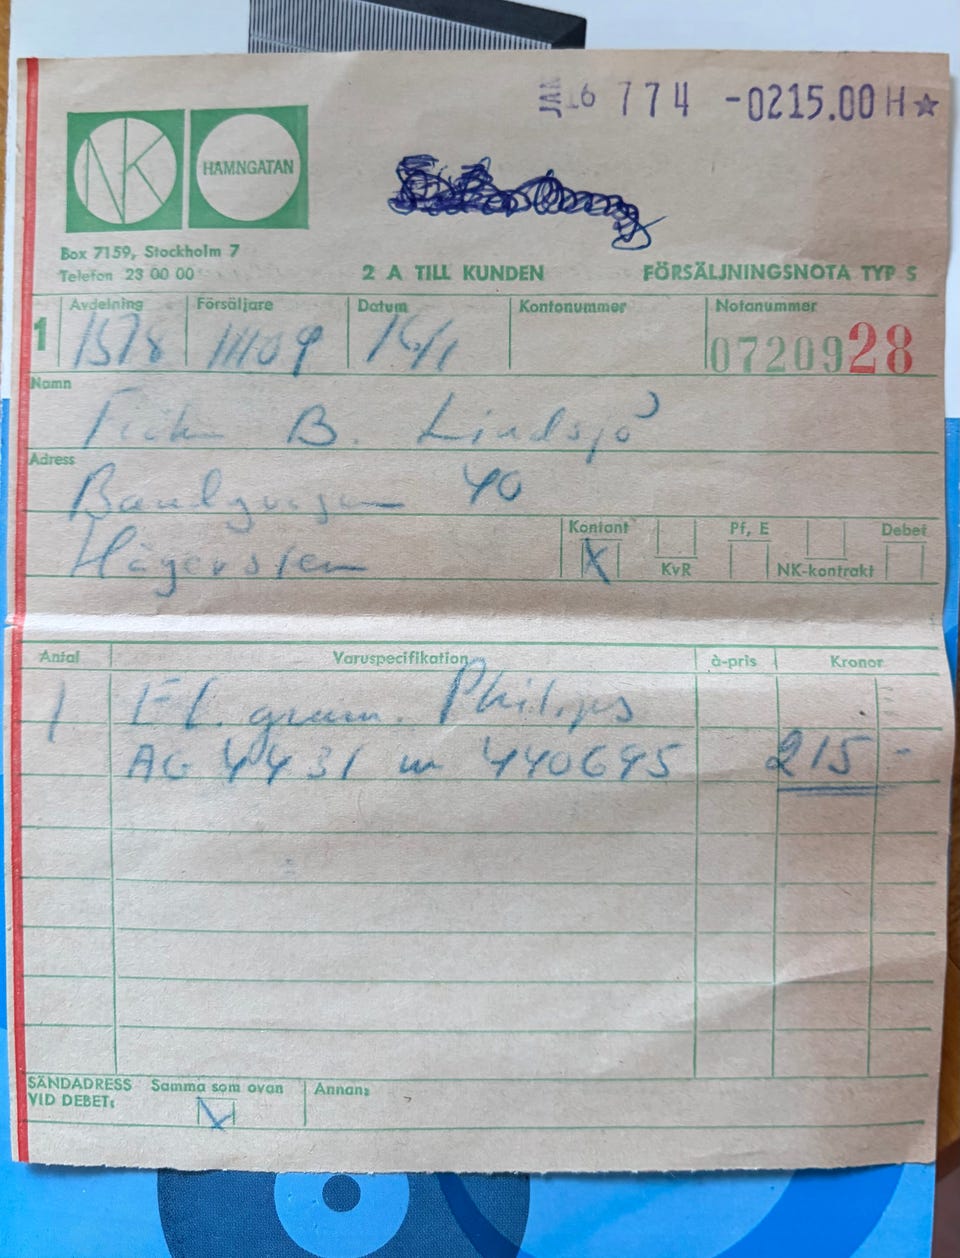 JAN 16 774 -0215.00 H☆
NK HAMNGATAN
Box 7159, Stockholm 7
Telefon 23 00 00
2 A TILL KUNDEN FÖRSÄLJNINGSNOTA TYP S
1 Avdelning Försäljare Datum Kontonummer Notanummer
1578 16/1 0720928
Namn
B. Lindsjö
Adress
40
Hägersten
Kontant X KvR Pf, E NK-kontrakt Debet
Antal Varuspecifikation à-pris Kronor
1 El. gram. Philips
AG 4431 440645 215 -
SÄNDADRESS VID DEBET: Samma som ovan X Annan: